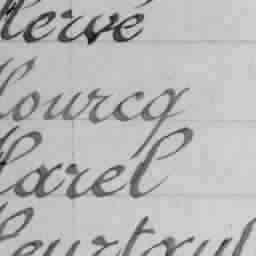 Hervé
Hourcq
Harel
Heurtaul